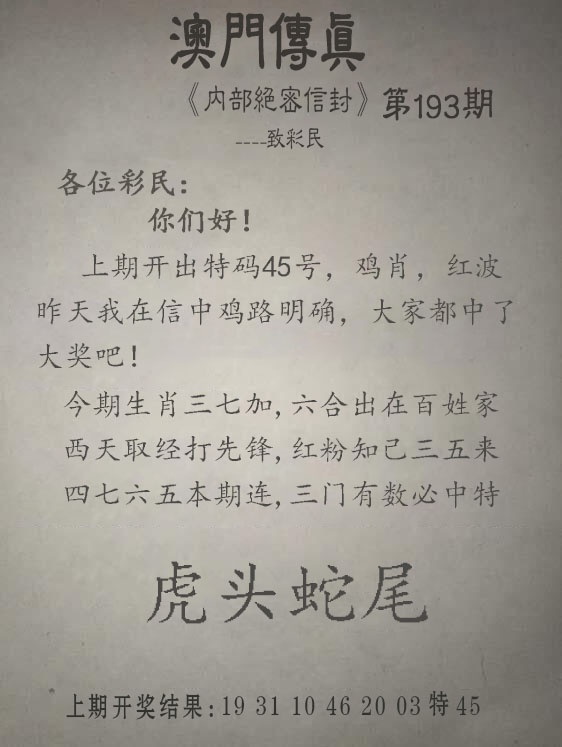 澳門傳眞
《内部絕密信封》第193期
----致彩民
各位彩民：
你们好！
上期开出特码45号，鸡肖，红波
昨天我在信中鸡路明确，大家都中了
大奖吧！
今期生肖三七加,六合出在百姓家
西天取经打先锋,红粉知己三五来
四七六五本期连,三门有数必中特
虎头蛇尾
上期开奖结果:19 31 10 46 20 03 特 45